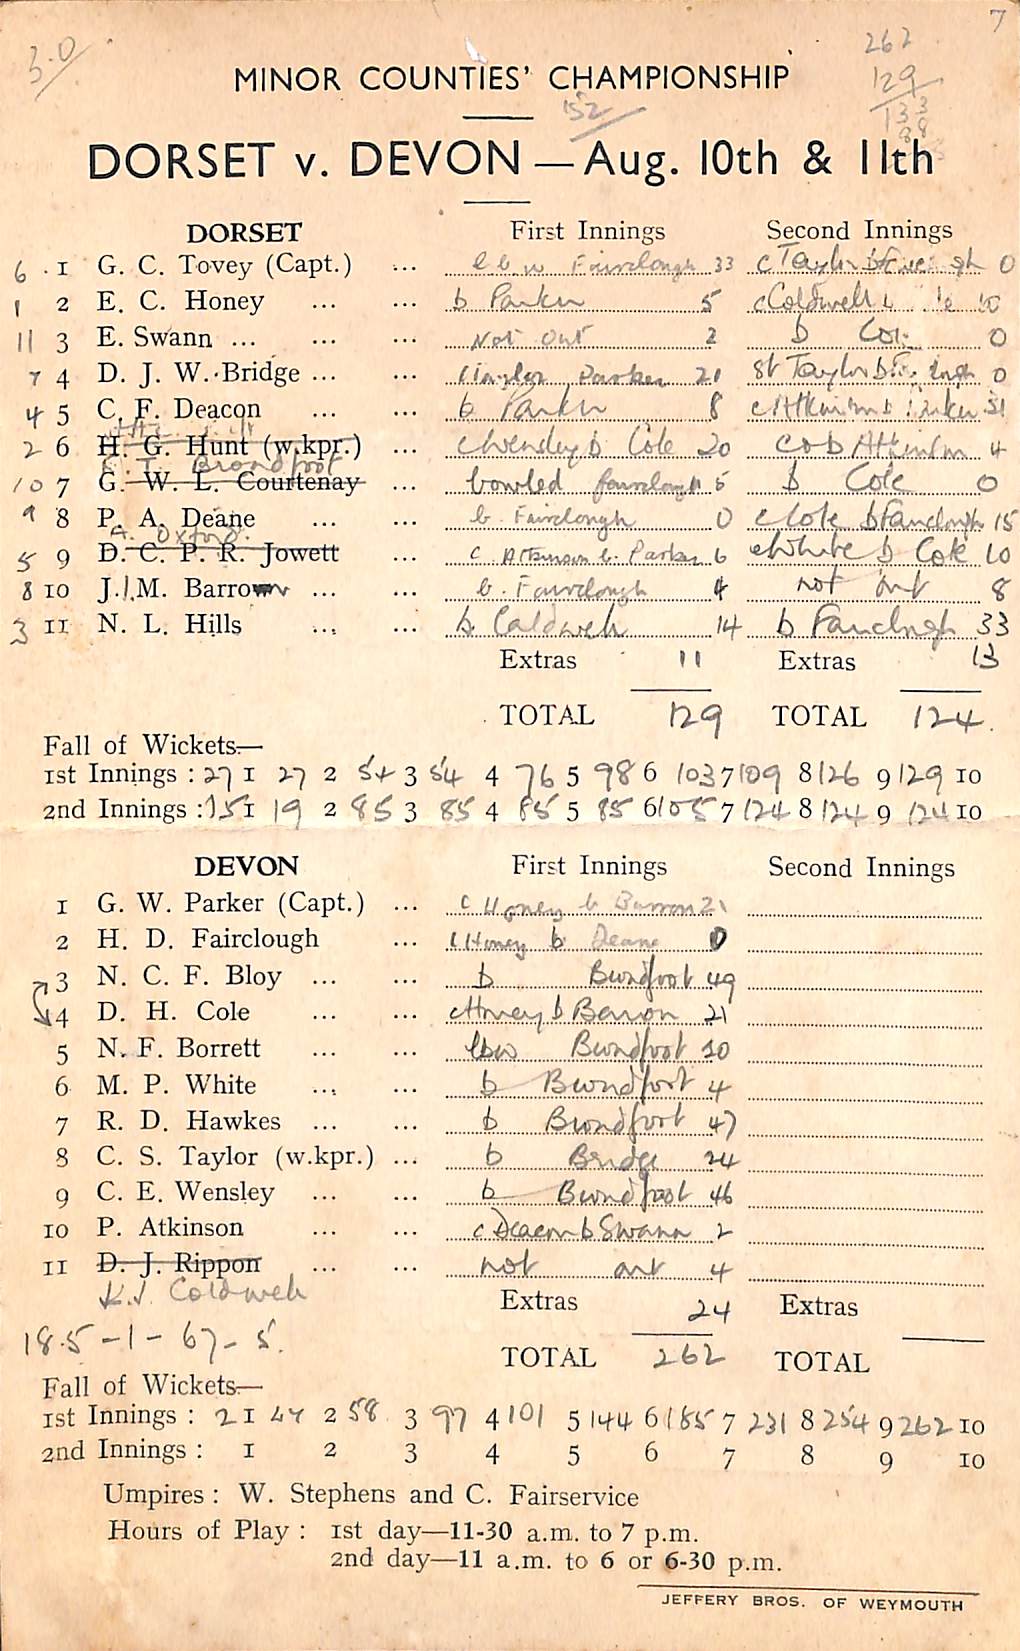 7
3.0
262
129
133
MINOR COUNTIES' CHAMPIONSHIP
152
DORSET v. DEVON — Aug. 10th & 11th
DORSET First Innings Second Innings
6 1 G. C. Tovey (Capt.) ... l b w Fairclough 33 c Taylor b 0
1 2 E. C. Honey ... ... b Parker 5 c Coldwell 10
11 3 E. Swann ... ... ... Not Out 2 b Cole 0
7 4 D. J. W. Bridge ... ... c Taylor Parker 21 St Taylor b 0
4 5 C. F. Deacon ... ... b Parker 8 c Atkinson b Parker 31
2 6 H. G. Hunt (w.kpr.) ... c Wensley b Cole 20 c & b Atkinson 4
Broadfoot
10 7 G. W. L. Courtenay ... bowled Fairclough 5 b Cole 0
9 8 P. A. Deane ... ... b. Fairclough 0 c Cole b Fairclough 15
A. Oxford.
5 9 D. C. P. R. Jowett ... c Atkinson b. Parker 6 c White b Cole 10
8 10 J. M. Barron ... ... b. Fairclough 4 not out 8
3 11 N. L. Hills ... ... b Caldwell 14 b Fairclough 33
Extras 11 Extras 13
TOTAL 129 TOTAL 124
Fall of Wickets—
1st Innings : 27 1 27 2 54 3 54 4 76 5 98 6 103 7 109 8 126 9 129 10
2nd Innings : 15 1 19 2 85 3 85 4 85 5 85 6 105 7 124 8 124 9 124 10
DEVON First Innings Second Innings
1 G. W. Parker (Capt.) ... c Honey b Barron 21
2 H. D. Fairclough ... c Honey b Deane 0
3 N. C. F. Bloy ... ... b Broadfoot 49
4 D. H. Cole ... ... c Honey b Barron 21
5 N. F. Borrett ... ... lbw Broadfoot 20
6 M. P. White ... ... b Broadfoot 4
7 R. D. Hawkes ... ... b Broadfoot 47
8 C. S. Taylor (w.kpr.) ... b Bridge 24
9 C. E. Wensley ... ... b Broadfoot 46
10 P. Atkinson ... ... c Deacon b Swann 2
11 D. J. Rippon ... ... not out 4
K.J. Coldwell
Extras 24 Extras
18.5 - 1 - 67 - 5.
TOTAL 262 TOTAL
Fall of Wickets—
1st Innings : 21 1 47 2 58 3 97 4 101 5 144 6 185 7 231 8 254 9 262 10
2nd Innings : 1 2 3 4 5 6 7 8 9 10
Umpires : W. Stephens and C. Fairservice
Hours of Play : 1st day—11-30 a.m. to 7 p.m.
2nd day—11 a.m. to 6 or 6-30 p.m.
JEFFERY BROS. OF WEYMOUTH